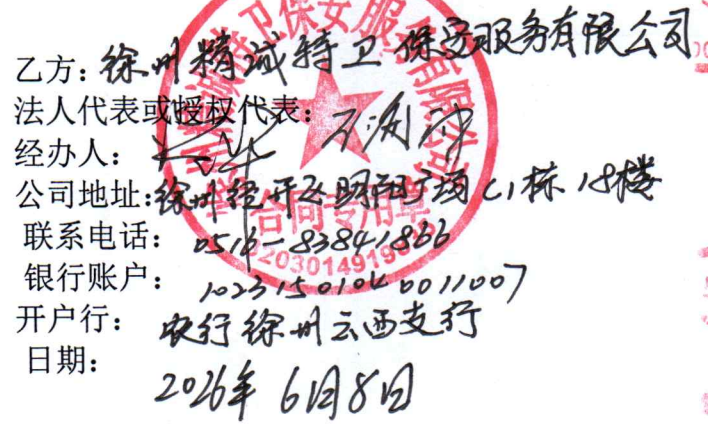 乙方：徐州精诚特卫保安服务有限公司
法人代表或授权代表：
经办人：
公司地址：徐州经开区明翔广场C1栋18楼
联系电话：0516-83841866
银行账户：10231501040011007
开户行：农行徐州云西支行
日期：
2026年6月8日
合同专用章